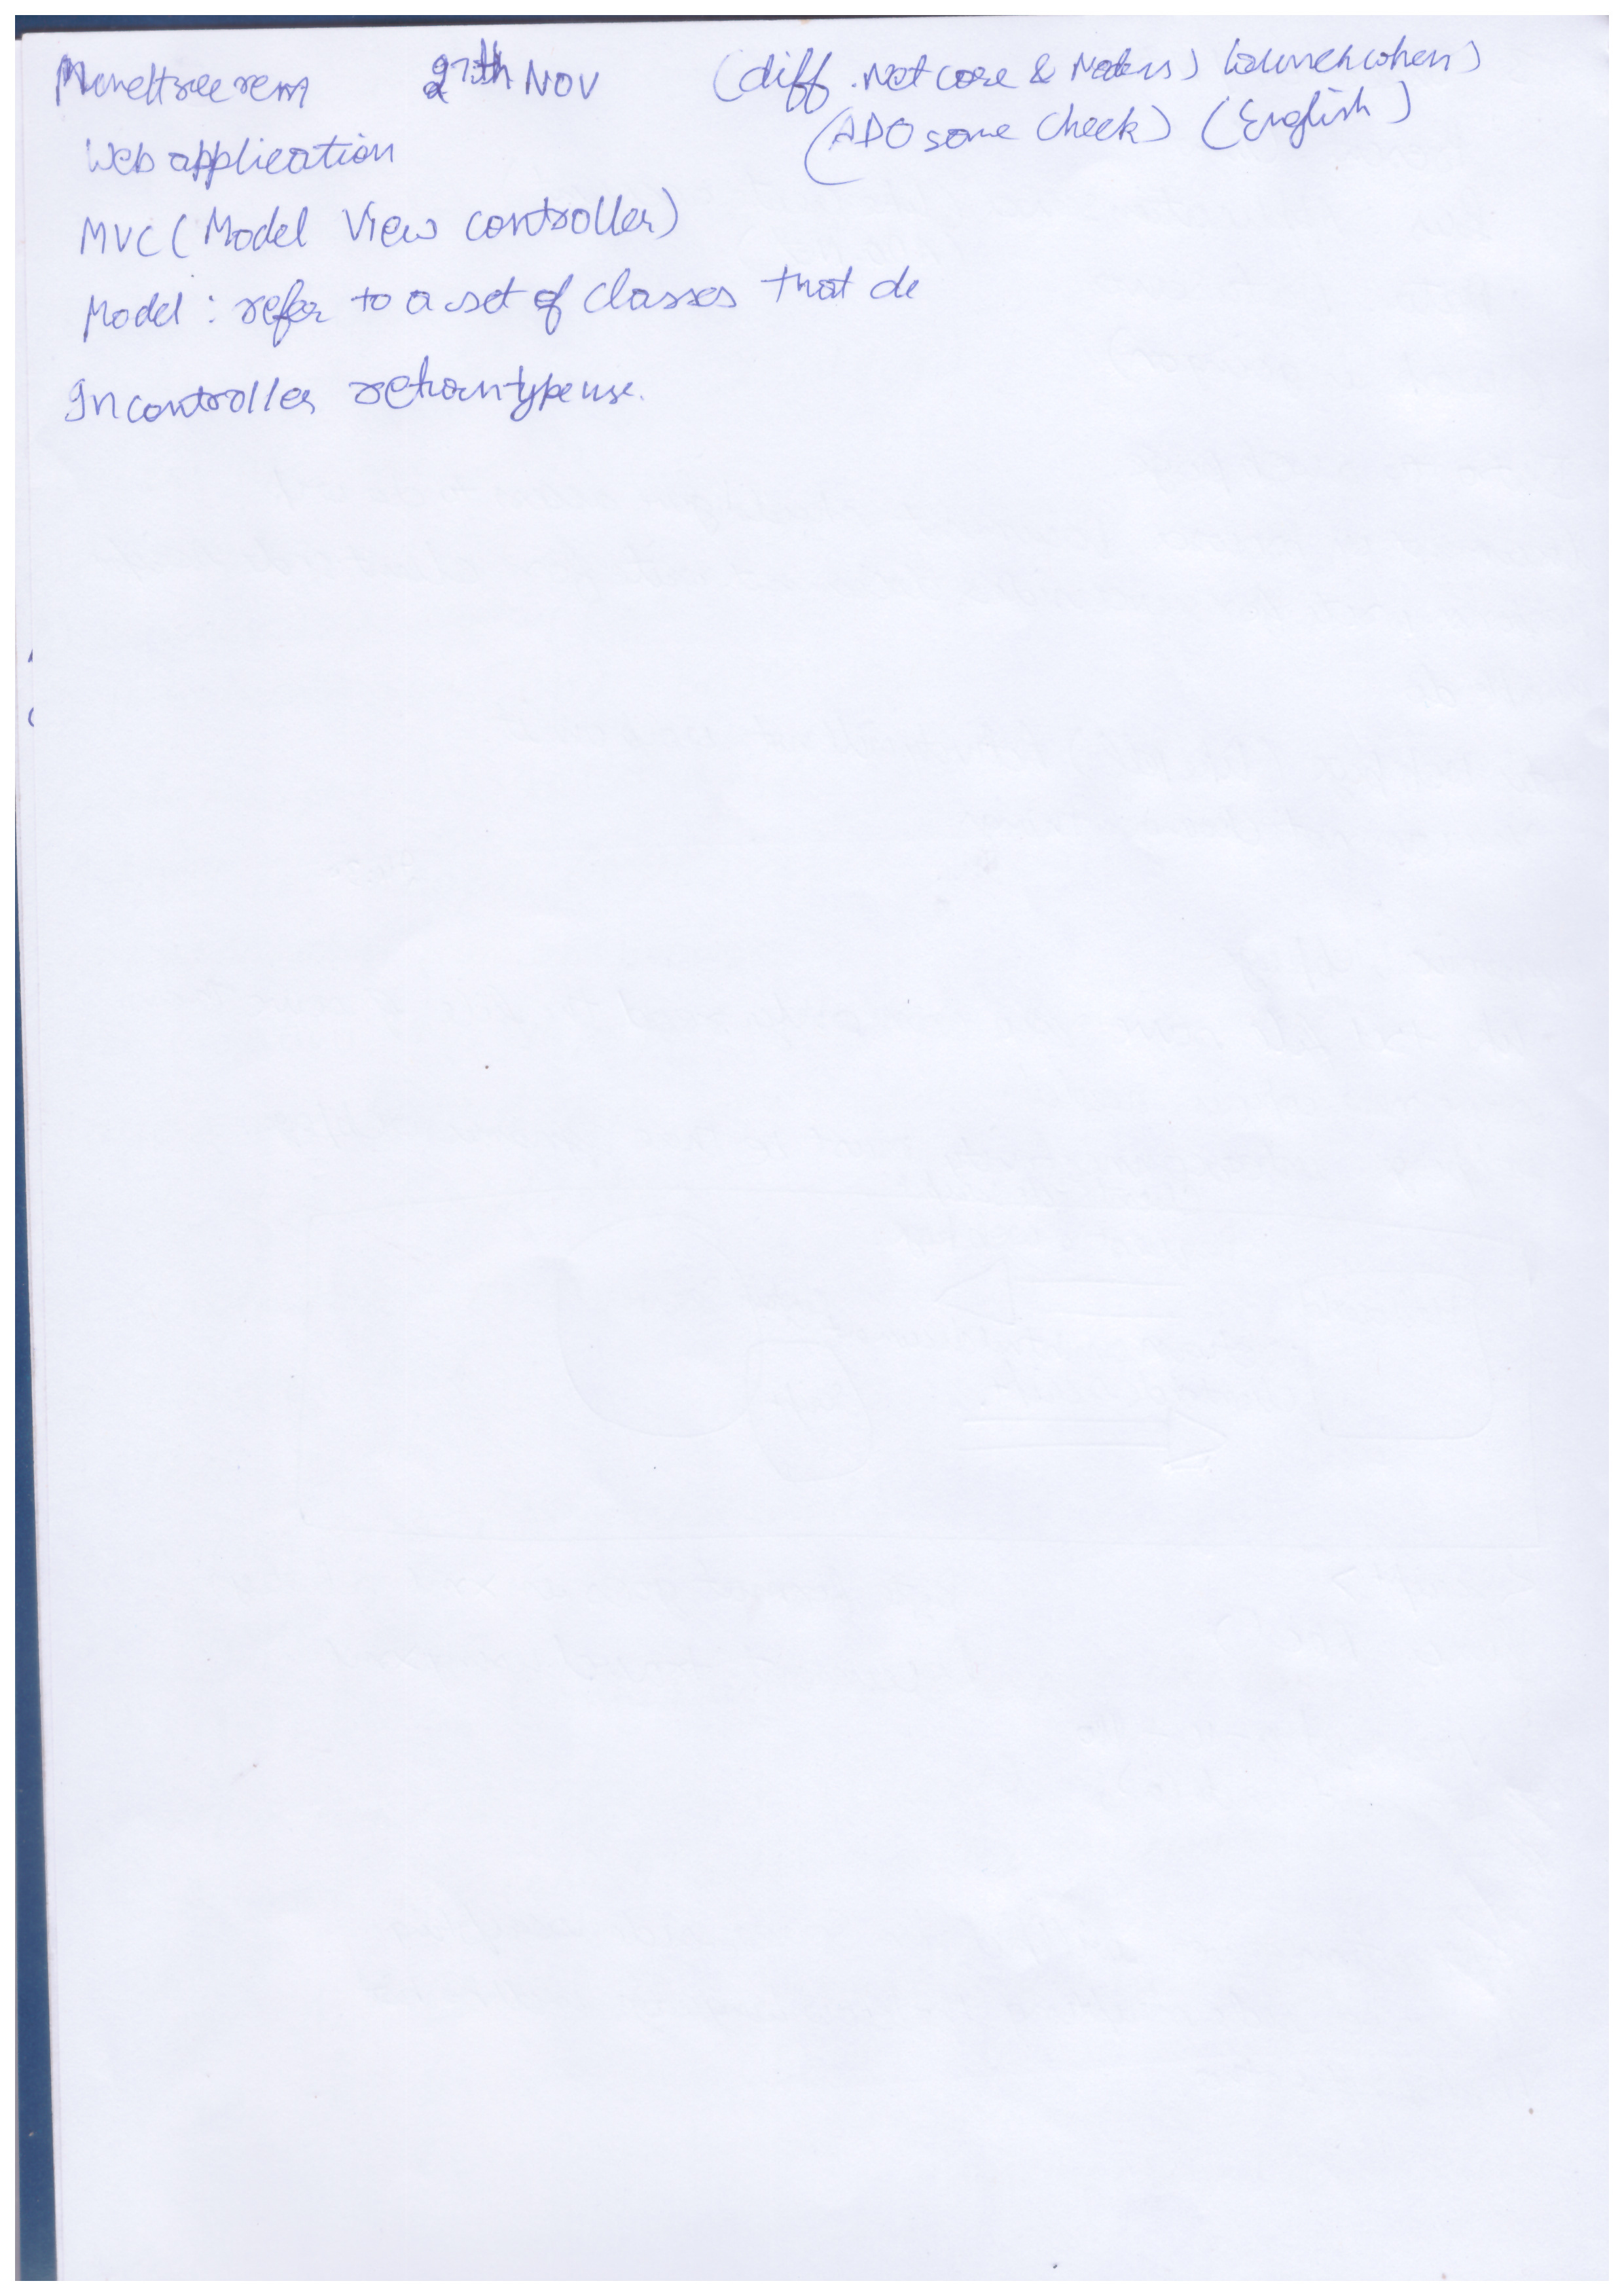 27th Nov (diff .Net core & ) Launch when)
(ADO some check) (English)
Web application
MVC (Model View controller)
Model : refer to a set of classes that de
In controller return type use.